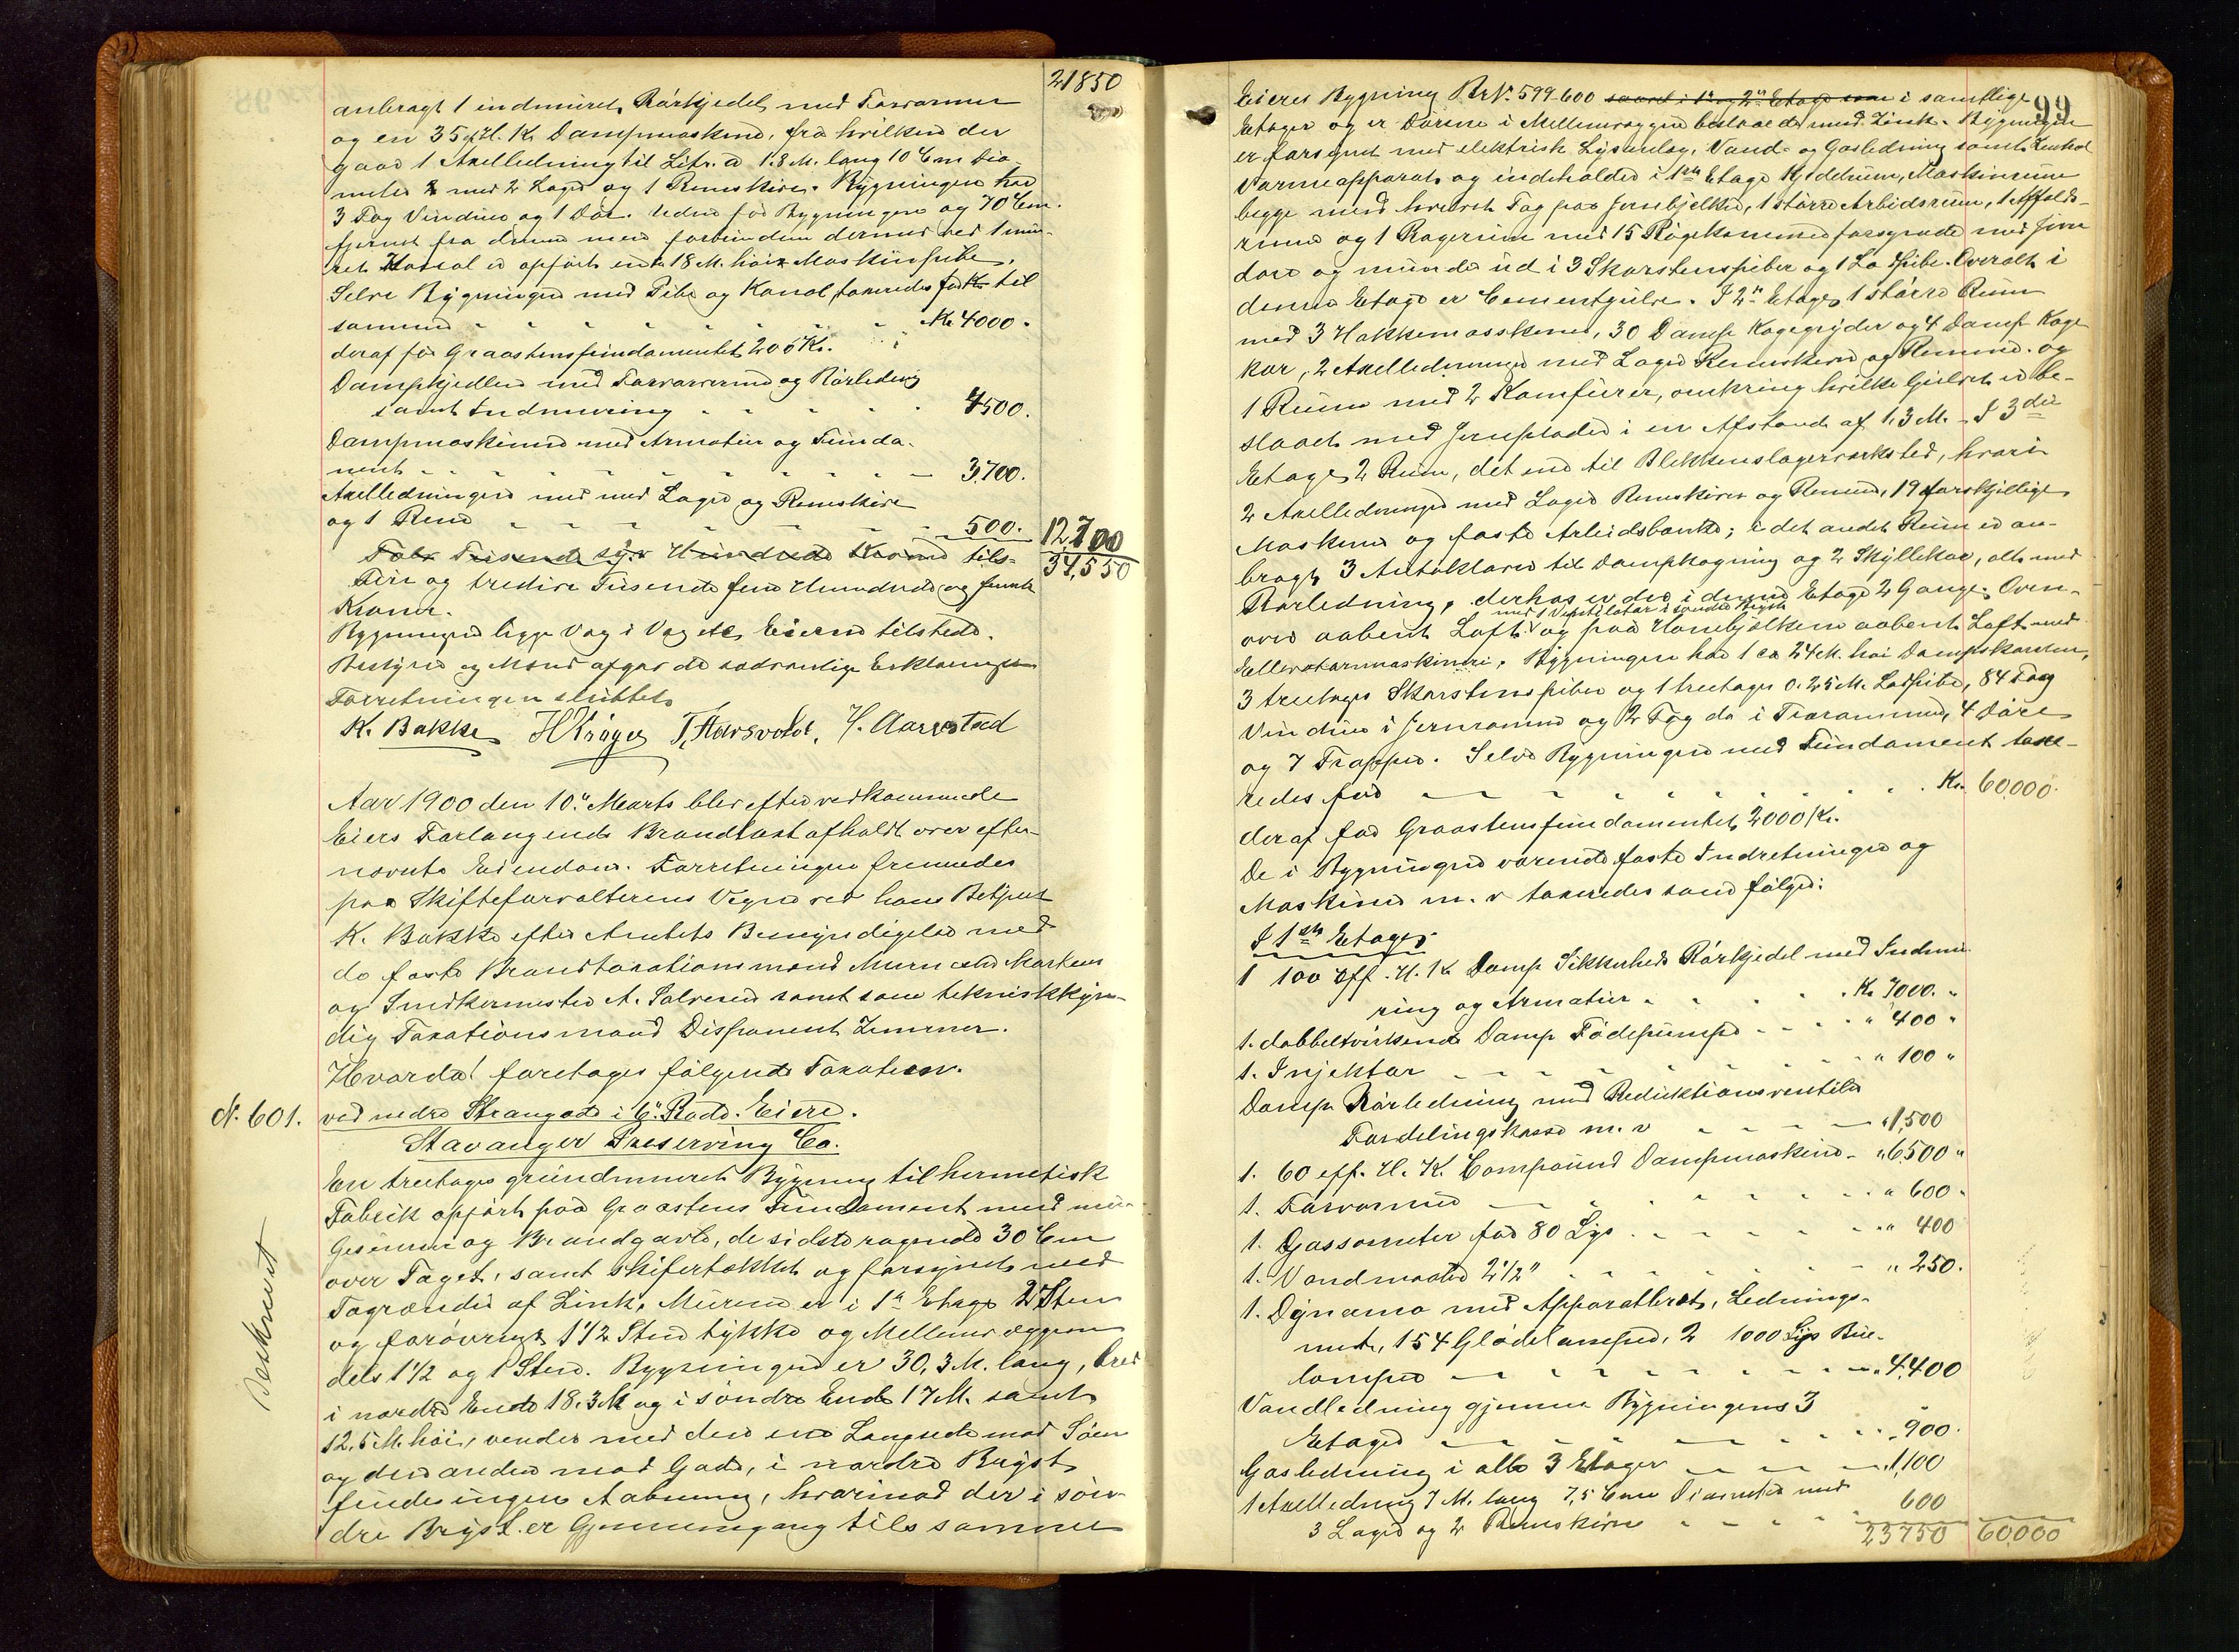 21850
anbragt 1 indmuret Rörkjedel med Forvarmer
og en 35 eff. H. K. Dampmaskine, fra hvilken der
gaar 1 Axelledning til Litr. a 1.8 M. lang 10 Cm Dia-
meter med 2 Lager og 1 Remskive. Bygningen har
3 Fag Vinduer og 1 Dör. Udenfor Bygningen og 70 Cm.
fjernet fra denne men forbunden dermed ved 1 mu-
ret Kanal er opfört en 18 M. höi Maskinpibe.
Selve Bygningen med Pibe og Kanal taxeredes til
sammen - - - Kr. 4000.
deraf for Graastensfundamentet 200 Kr.
Dampkjedlen med Forvarmer og Rörledning
samt Indmuring - - - 4500.
Dampmaskinen med Armatur og Funda-
ment - - - 3,700.
Axelledningen med Lager og Remskive
og 1 Rem - - - 500. 12,700
Tolv Tusende syv Hundrede Kroner tils- 34,550
Fire og tredive Tusende fem Hundrede og femti
Kroner.
Bygningen ligger Væg i Væg etc. Eieren tilstede.
Bestyrer og Mænd afgav de sædvanlige Erklæringer
Forretningen sluttet.
K. Bakke H Kröger T. Aarsvold. H. Aarrestad
Aar 1900 den 10. Marts blev efter vedkommende
Eiers Forlangende Brandtaxt afholdt over efter-
nævnte Eiendom. Forretningen fremmedes
paa Skifteforvalterens Vegne ved hans Betjent
K. Bakke efter Amtets Bemyndigelse med
de faste Brandtaxationsmænd Murmester Markussen
og Snedkermester A. Salvesen samt som tekniskkyn-
dig Taxationsmand Disponent Zimmer.
Hvorda! foretages fölgende Taxation.
N. 601. ved nedre Strandgade i 6. Rode. Eiere.
Stavanger Preserving Co.
En treetages grundmuret Bygning til hermetisk
Fabrik opfört paa Graastens Fundament med muret
Gesimser og Brandgavle, de sidste ragende 30 Cm
over Taget, samt skifertækket og forsynet med
Tagrender af Zink. Murene er i 1ste Etage 2 Sten
og forövrigt 1 1/2 Sten tykke og Mellemvæggene
dels 1 1/2 og 1 Sten. Bygningen er 30,3 M. lang, bred
i nordre Ende 18.3 M og i söndre Ende 17 M. samt
12,5 M. höi, vender med den ene Langside mod Söen
og den anden mod Gade, i nordre Bryst
findes ingen Aabning, hvorimod der i sön-
dre Bryst er Gjennemgang til samme
Beskrevet
99
Eieres Bygning Br.N. 599-600 saavel i 1ste og 2den Etage som i samtlige
Etager og er Dörene i Mellemvæggene beslaaede med Zink. Bygningen
er forsynet med elektrisk Lysanlæg, Vand- og Gasledning samt Zentral
Varmeapparat og indeholder i 1ste Etage Kjedelrum, Maskinrum
begge med hvælvet Tag paa Jernbjelker, 1 större Arbeidsrum, 1 Affalds-
rum og 1 Rögerum med 15 Rögekammere forsynede med Jern
döre og munder ud i 3 Skorstenspiber og 1 Lodpibe. Overalt i
denne Etage er Cementgulve. I 2den Etage 1 större Rum
med 3 Hakkemaskiner, 30 Damp Kogegryder og 4 Damp Koge
kar, 2 Axelledninger med Lager Remskiver og Remme. og
1 Rum med 2 Komfurer, omkring hvilke Gulvet er be-
slaaet med Jernplader i en Afstand af 1.3 M. I 3die
Etage 2 Rum, det ene til Blikkenslagerværksted, hvori
2 Axelledninger med Lager Remskiver og Remme, 19 forskjellige
Maskiner og faste Arbeidsbænke; i det andet Rum er an-
bragt 3 Autoklaver til Dampkogning og 2 Skyllekar, alt med
Rörledning, derhos er der i denne Etage 2 Gange. Oven-
med 1 Ventilator i söndre Bryst
over aabent Loft og paa Hanebjelkerne aabent Loft med
Ellevatormaskineri. Bygningen har 1 ca 24 M. höi Dampskorsten,
3 treetages Skorstenspiber og 1 treetages 0.25 M. Lodpibe, 84 Fag
Vinduer i Jernramme og 2 Fag do i Trærammer, 4 Döre
og 7 Trapper. Selve Bygningen med Fundament taxe-
redes for - - - Kr. 60,000.
deraf for Graastensfundamentet 2000 Kr.
De i Bygningen værende faste Indretninger og
Maskiner m. v taxeredes som fölger:
I 1ste Etage.
1 100 eff. H. K Damp Sikkerheds Rörkjedel med Indmu-
ring og Armatur - - - Kr. 7000. "
1. dobbeltvirkende Damp Födepumpe - - - " 400 "
1. Injektor - - - " 100 "
Damp Rörledning med Reduktionsventiler
Fordelingskasse m. v - - - " 1,500
1. 60 eff. H. K. Compound Dampmaskine - " 6500 "
1. Forvarmer - - - " 600 "
1. Gassometer for 80 Lys - - - " 400
1. Vandmaaler 2 1/2" - - - " 250.
1. Dynamo med Apparatbræt, Lednings-
nett, 154 Glödelamper, 2 1000 Lys Bue-
lamper - - - " 4,400
Vandledning gjennem Bygningens 3
Etager - - - " 900.
Gasledning i alle 3 Etager - - - " 1,100
1 Axelledning 7 M. lang 7,5 Cm Diameter med
3 Lager og 2 Remskiver - - - 600
23750 60,000